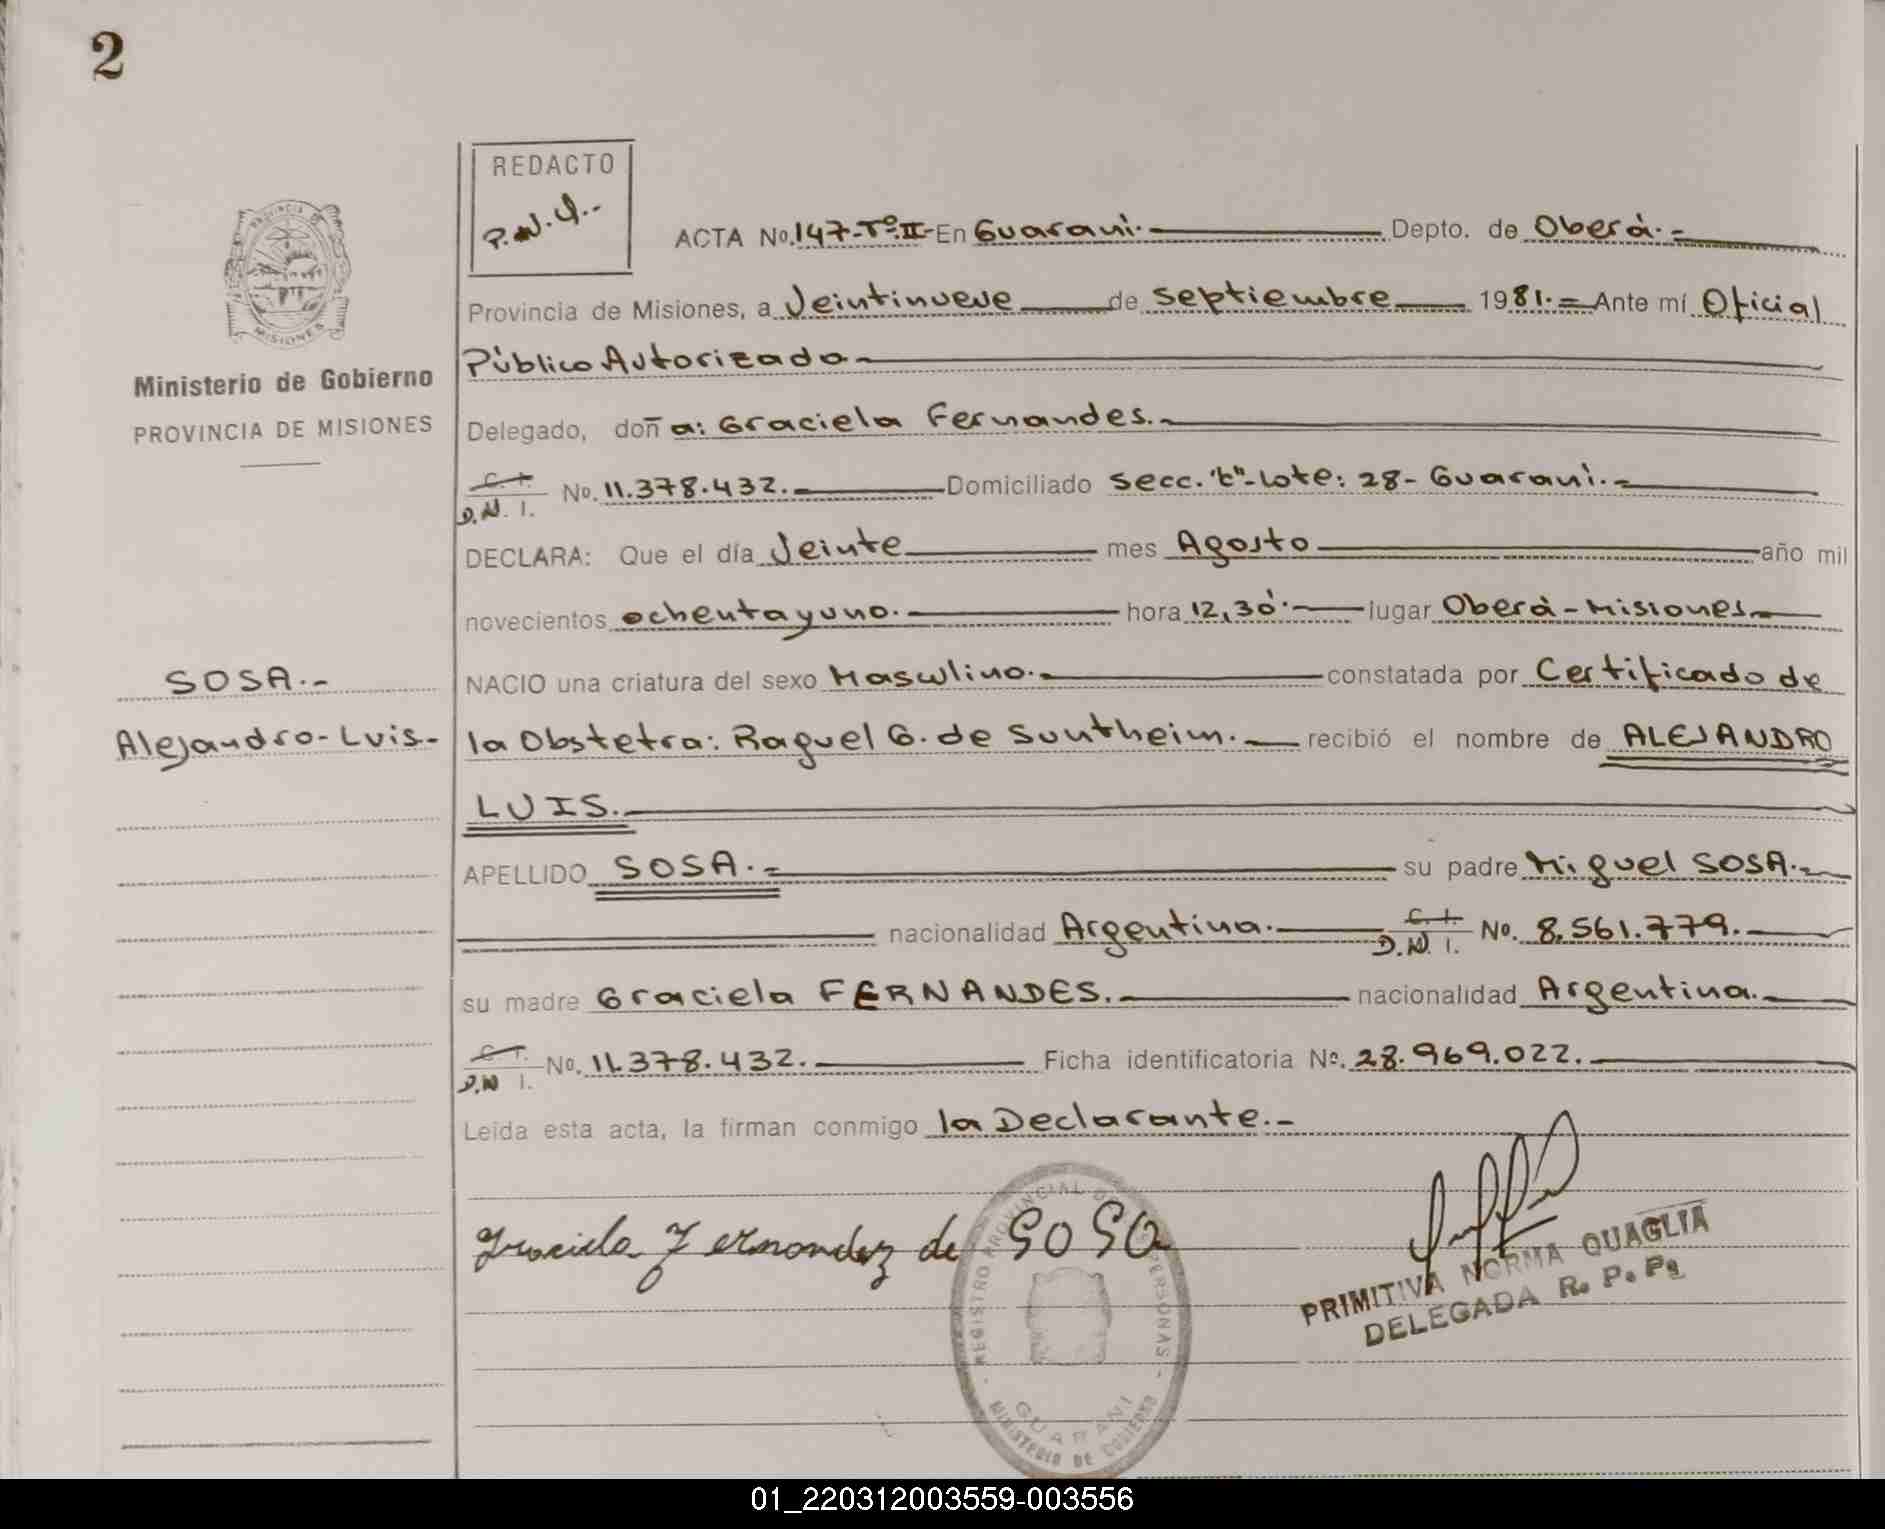 2
REDACTO
P.N.Q.-
ACTA No. 147-Tº.II- En Guaraní.- Depto. de Oberá.-
PROVINCIA DE
MISIONES
Ministerio de Gobierno
PROVINCIA DE MISIONES
Provincia de Misiones, a Veintinueve de septiembre 1981.- Ante mí Oficial
Público Autorizado.-
Delegado, doña: Graciela Fernandes.-
C. I.
D.N.I. No. 11.378.432.- Domiciliado Secc. "t"- Lote: 28- Guaraní.-
DECLARA: Que el día Veinte mes Agosto año mil
novecientos ochenta y uno.- hora 12,30'.- lugar Oberá-Misiones.-
SOSA.-
NACIO una criatura del sexo Masculino.- constatada por Certificado de
Alejandro-Luis-
la Obstetra: Raquel G. de Suntheim.- recibió el nombre de ALEJANDRO
LUIS.-
APELLIDO SOSA.- su padre Miguel SOSA.-
nacionalidad Argentina.- C. I. D.N.I. No. 8.561.779.-
su madre Graciela FERNANDES.- nacionalidad Argentina.-
C. I.
D.N I. No. 11.378.432.- Ficha identificatoria Nº. 28.969.022.-
Leída esta acta, la firman conmigo la Declarante.-
Graciela Fernandez de SOSA
REGISTRO PROVINCIAL DE PERSONAS
GUARANI
MINISTERIO DE GOBIERNO
PRIMITIVA NORMA QUAGLIA
DELEGADA R. P. P.
01_220312003559-003556